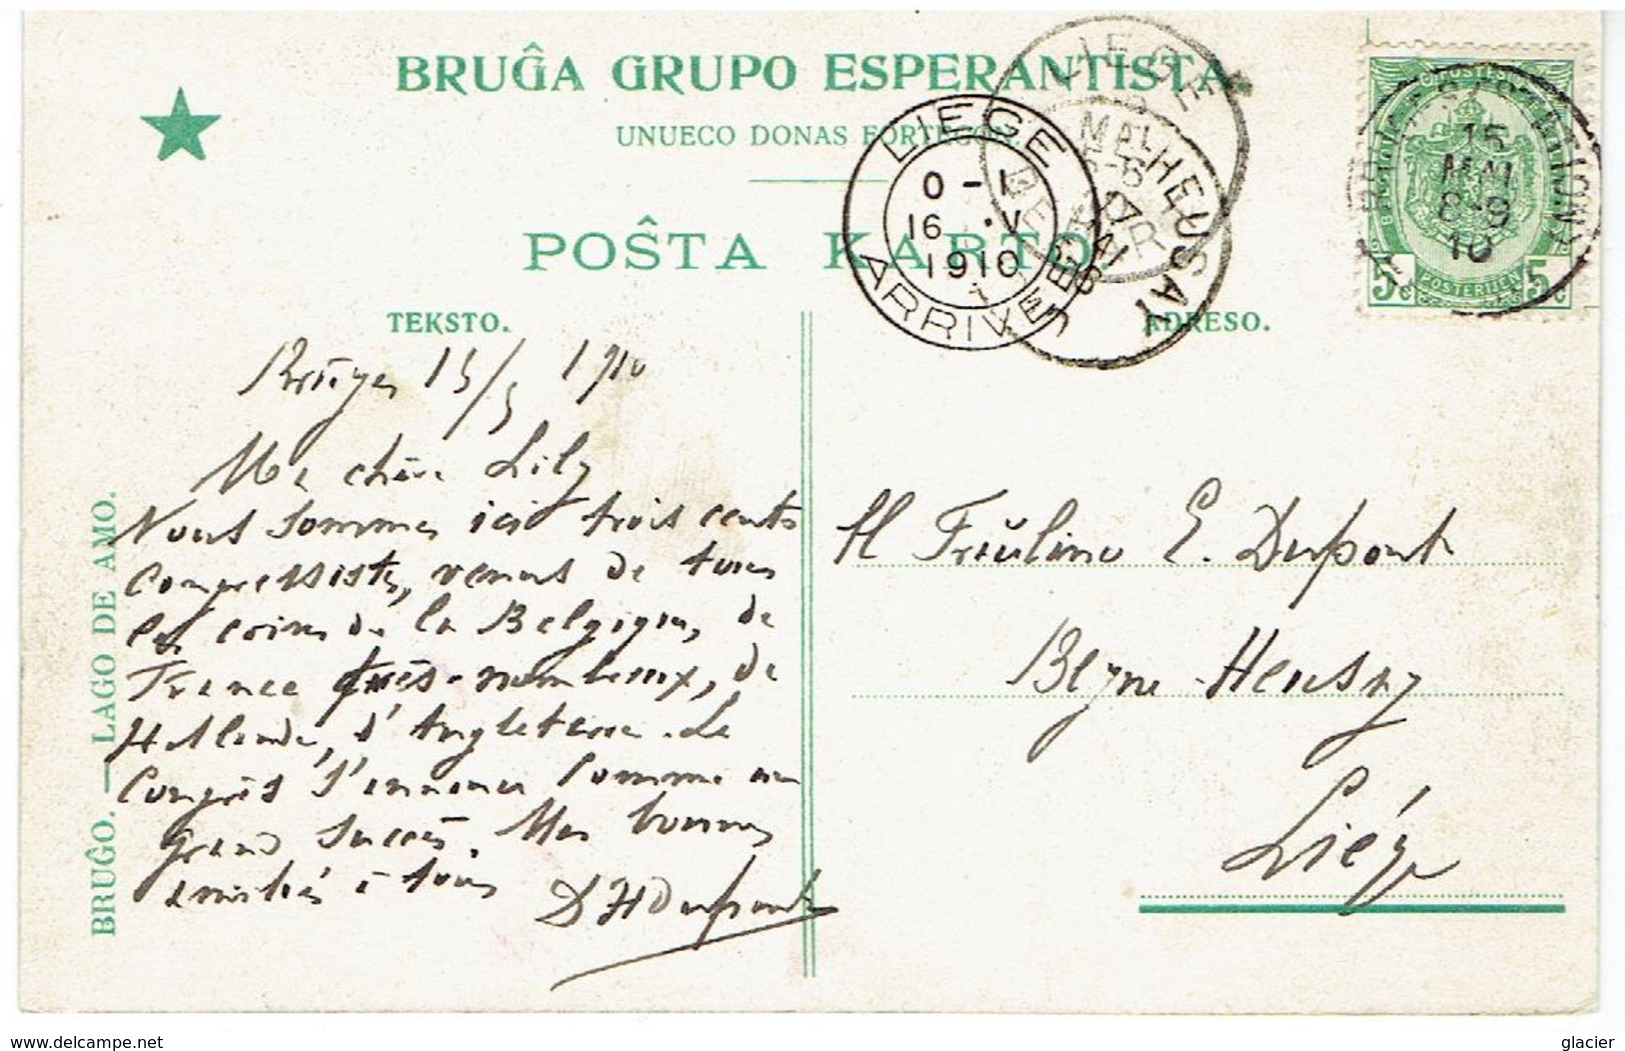 BRUĜA GRUPO ESPERANTISTA
UNUECO DONAS FORTECON.
POŜTA KARTO
TEKSTO.
ADRESO.
LIEGE
0 - 1
16 V
1910
ARRIVEE
LIEGE
15
MAI
8-9
10
5c POSTERIJEN 5c
BRUĜO. — LAGO DE AMO.
Bruges 15/5 1910
Ma chère Lily
Nous sommes ici trois cents
congressistes, venus de tous
les coins de la Belgique, de
France très-nombreux, de
Hollande, d'Angleterre. Le
Congrès s'annonce comme un
grand succès. Mes bonnes
amitiés à tous
DH Dupont
Al Fraŭlino E. Dupont
Beyne-Heusay
Liége
www.delcampe.net
glacier